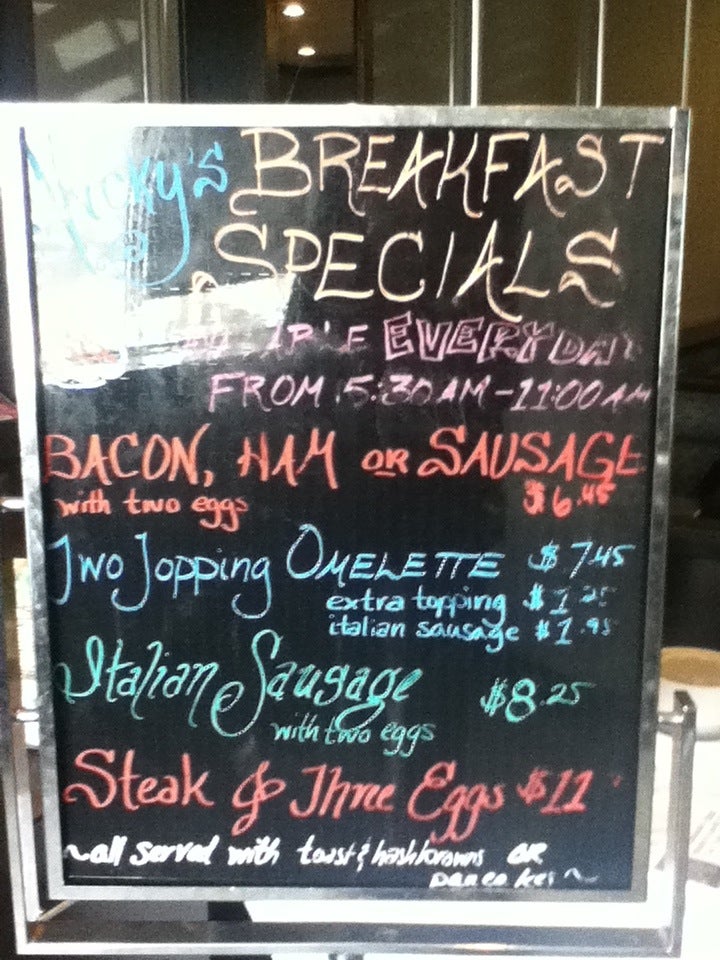 BREAKFAST
SPECIALS
EVERYDAY
FROM 5:30AM-11:00AM
BACON, HAM OR SAUSAGE
with two eggs $6.45
Two Topping OMELETTE $7.45
extra topping $1.25
italian sausage $1.95
Italian Sausage $8.25
with two eggs
Steak & Three Eggs $11
~all served with toast & hashbrowns OR
pancakes~